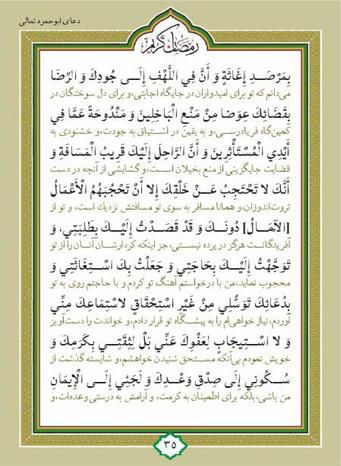 دعای ابوحمزه ثمالی
رمضان کریم
بِمَرْصَدِ إِغَاثَةٍ وَ أَنَّ فِي اللَّهْفِ إِلَى جُودِكَ وَ الرِّضَا
می‌دانم که تو برای امیدواران در جایگاه اجابتی، و برای دل سوختگان در
بِقَضَائِكَ عِوَضا مِنْ مَنْعِ الْبَاخِلِينَ وَ مَنْدُوحَةً عَمَّا فِي
کمین‌گاه فریادرسی، و به یقین در اشتیاق به جودت، و خشنودی به
أَيْدِي الْمُسْتَأْثِرِينَ وَ أَنَّ الرَّاحِلَ إِلَيْكَ قَرِيبُ الْمَسَافَةِ وَ
قضایت جایگزینی از منع بخیلان است، و گشایشی از آنچه در دست
أَنَّكَ لا تَحْتَجِبُ عَنْ خَلْقِكَ إِلا أَنْ تَحْجُبَهُمُ الْأَعْمَالُ
ثروت‌اندوزان، و همانا مسافر به سوی تو مسافتش نزدیک است، و تو از
[الْآمَالُ] دُونَكَ وَ قَدْ قَصَدْتُ إِلَيْكَ بِطَلِبَتِي، وَ
آفریدگانت هرگز در پرده نیستی، جز اینکه کردارشان آنان را از تو
تَوَجَّهْتُ إِلَيْكَ بِحَاجَتِي وَ جَعَلْتُ بِكَ اسْتِغَاثَتِي وَ
محجوب نماید، من با درخواستم آهنگ تو کردم و با حاجتم روی به تو
بِدُعَائِكَ تَوَسُّلِي مِنْ غَيْرِ اسْتِحْقَاقٍ لاسْتِمَاعِكَ مِنِّي
آوردم، نیاز خواهی‌ام را به پیشگاه تو قرار دادم، و خواندت را دست‌آویز
وَ لا اسْتِيجَابٍ لِعَفْوِكَ عَنِّي بَلْ لِثِقَتِي بِكَرَمِكَ وَ
خویش نمودم بی‌آنکه مستحق شنیدن خواهشم، و شایسته گذشت از
سُكُونِي إِلَى صِدْقِ وَعْدِكَ وَ لَجَئِي إِلَى الْإِيمَانِ
من باشی، بلکه برای اطمینان به کرمت، و آرامش به درستی وعده‌ات، و
۳۵